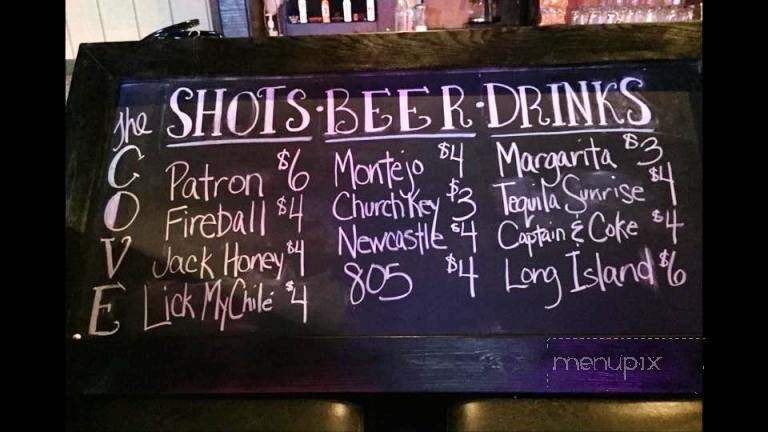 The COVE
SHOTS · BEER · DRINKS
Patron $6
Fireball $4
Jack Honey $4
Lick My Chilé $4
Montejo $4
Church Key $3
Newcastle $4
805 $4
Margarita $3
Tequila Sunrise $4
Captain & Coke $4
Long Island $6
menupix